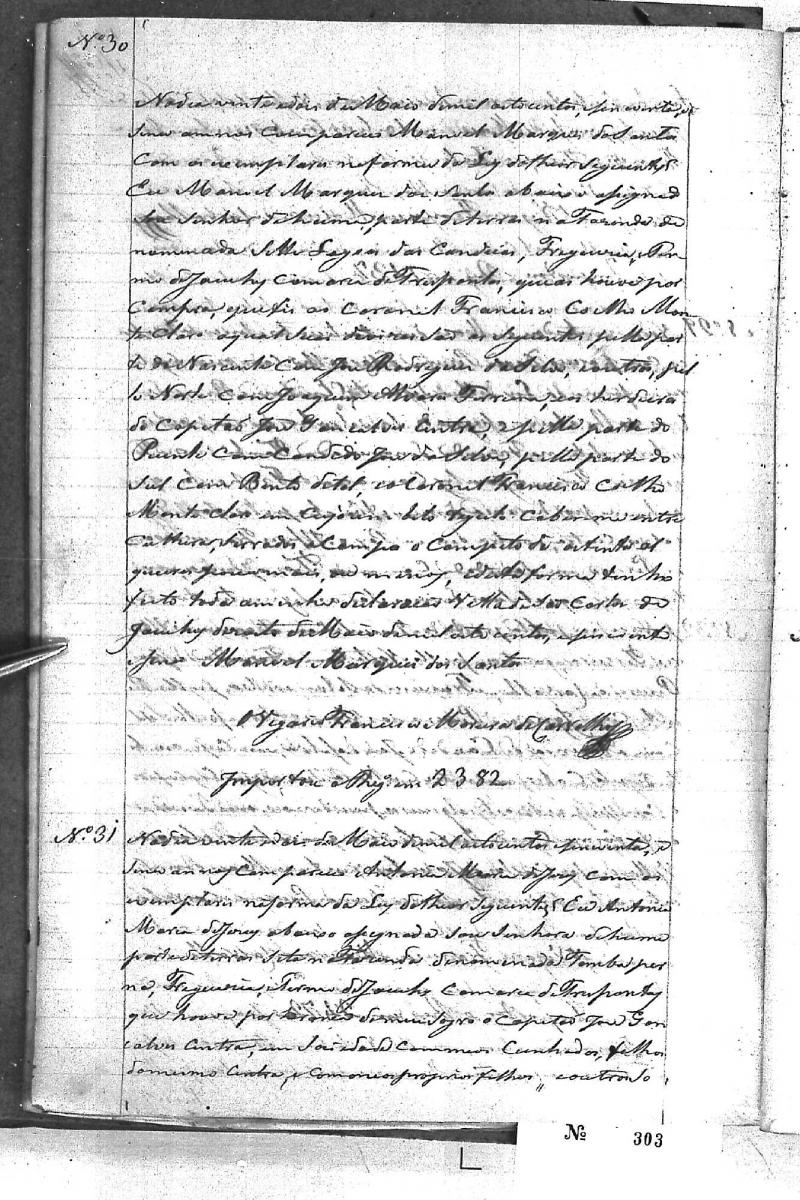 Nº 30
No dia vinte e dois de Maio de mil oito centos, e sincoenta, e
sinco annos Compareceo Manoel Marques do Santo
Com os exemplares na forma da Ley do theor Seguinte
Eu Manoel Marques dos Santos abaixo asignado
Sou Senhor de huma parte de terras na Fazenda de
nominada Sette Lagoas das Candeias, Freguezia, e Ter
mo de Jacuhy Comarca de Trespontas, que as houve por
Compra, que fis ao Coronel Francisco Coelho Mon
te Claro a qual suas devizas São as Seguintes pella par
te do Nascente Com José Rodrigues da Silva, e outros, pel
lo Norte Com Joaquim Alvares Ferreira, e os herdeiros
do Capitaõ José Gonçalves Cintra, e pella parte do
Poente Com Candido José da Silva, e pella parte do
Sul Com Bento e o Coronel Francisco Coelho
Monte Claro em Cujo Caber me entre
Culturas, Serrados, e Campo o Computo de al
queires pouco mais, ou menos, e desta forma tenho
feito toda a minha declaração Villa de São Carlos de
Jacuhy de Maio de mil oito centos, e sincoenta
e sinco Manoel Marques dos Santos
O Vigario Francisco Moreira de Carvalho
Importou o Rego em 2382
Nº 31
No dia vinte e dois de Maio de mil oito centos e sincoenta, e
sinco annos Compareceo Antonia Maria de Jesus com os
exemplares na forma da Ley do theor Seguinte Eu Antonia
Maria de Jesus abaixo asignada Sou Senhora de huma
parte de terras Sita na Fazenda denominada Tomba per
na, Freguezia, e Termo de Jacuhy Comarca de Trespontas
que houve por herança de meu Sogro o Capitaõ José Gon
calves Cintra, em Sociedade Com meos Cunhados, filhos
do mesmo Cintra, e Com meos proprios filhos, e outros
Nº 303